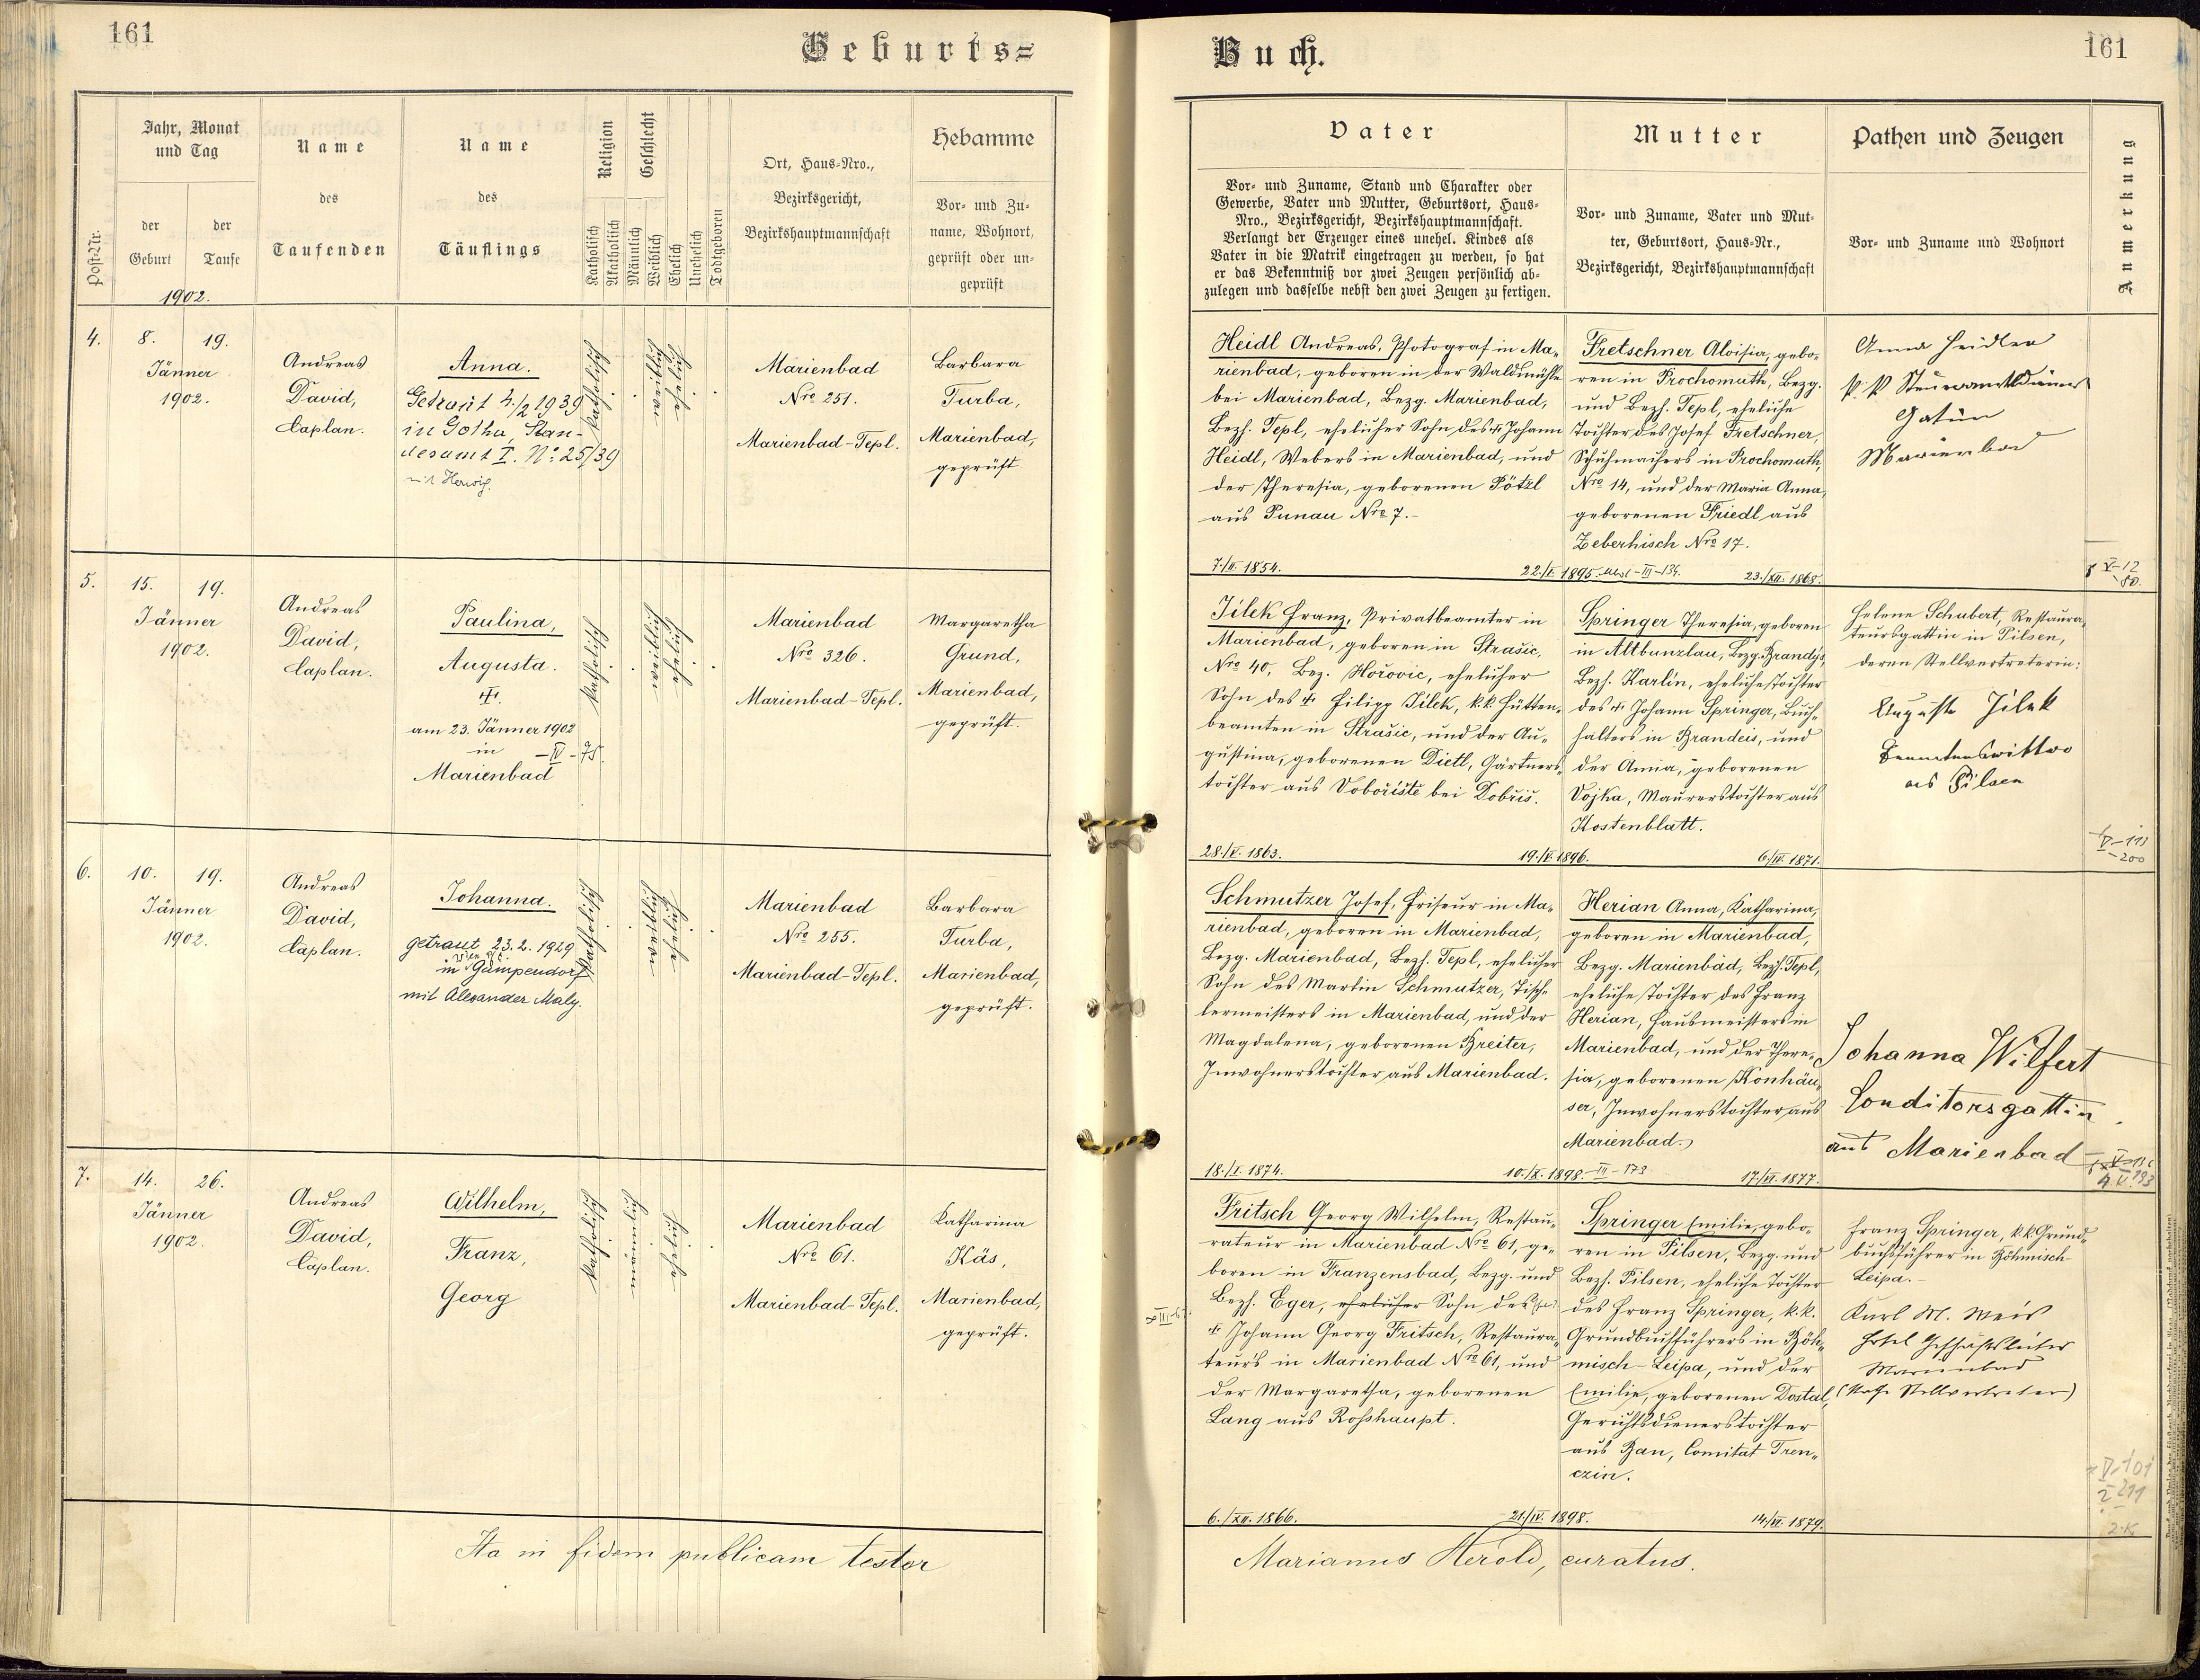 161
Geburts=
Jahr, Monat
und Tag
der
Geburt
der
Taufe
1902.
Post-Nr.
Name
des
Taufenden
Name
des
Täuflings
Religion
Katholisch
Akatholisch
Geschlecht
Männlich
Weiblich
Ehelich
Unehelich
Todtgeboren
Ort, Haus-Nro.,
Bezirksgericht,
Bezirkshauptmannschaft
Hebamme
Vor- und Zu-
name, Wohnort,
geprüft oder un-
geprüft
4.
8.
19.
Jänner
1902.
Andreas
David,
Caplan.
Anna.
Getraut 4./2 1939
in Gotha, Stan-
desamt I. No. 25/39
mit Herwig.
katholisch
weiblich
ehelich
Marienbad
Nro 251.
Marienbad-Tepl.
Barbara
Turba,
Marienbad,
geprüft
5.
15.
19.
Jänner
1902.
Andreas
David,
Caplan.
Paulina,
Augusta.
am 23. Jänner 1902
in -IV-75.
Marienbad
katholisch
weiblich
ehelich
Marienbad
Nro 326.
Marienbad-Tepl.
Margaretha
Grund,
Marienbad,
geprüft.
6.
10.
19.
Jänner
1902.
Andreas
David,
Caplan.
Johanna.
getraut 23.2.1929
in Gumpendorf
mit Alexander Maly.
katholisch
weiblich
ehelich
Marienbad
Nro 255.
Marienbad-Tepl.
Barbara
Turba,
Marienbad,
geprüft.
7.
14.
26.
Jänner
1902.
Andreas
David,
Caplan.
Wilhelm,
Franz,
Georg
katholisch
männlich
ehelich
Marienbad
Nro 61.
Marienbad-Tepl.
Katharina
Käs,
Marienbad,
geprüft.
Ita in fidem publicam testor
Buch.
161
Vater
Vor- und Zuname, Stand und Charakter oder
Gewerbe, Vater und Mutter, Geburtsort, Haus-
Nro., Bezirksgericht, Bezirkshauptmannschaft.
Verlangt der Erzeuger eines unehel. Kindes als
Vater in die Matrik eingetragen zu werden, so hat
er das Bekenntniß vor zwei Zeugen persönlich ab-
zulegen und dasselbe nebst den zwei Zeugen zu fertigen.
Mutter
Vor- und Zuname, Vater und Mut-
ter, Geburtsort, Haus-Nr.,
Bezirksgericht, Bezirkshauptmannschaft
Pathen und Zeugen
Vor- und Zuname und Wohnort
Anmerkung
Heidl Andreas, Photograf in Ma-
rienbad, geboren in der Waldmühle
bei Marienbad, Bezg. Marienbad,
Bezh. Tepl, ehelicher Sohn des Johann
Heidl, Webers in Marienbad, und
der Theresia, geborenen Pötzl
aus Punau Nro 7.-
7./II. 1854.
22./I. 1895.
Fretschner Aloisia, gebo-
ren in Prochomuth, Bezg.
und Bezh. Tepl, eheliche
Tochter des Josef Fretschner,
Schuhmachers in Prochomuth,
Nro 14, und der Maria Anna,
geborenen Friedl aus
Zeberhisch Nro 17.
23./XII. 1868.
Anna Heidler
k. k. Steueramtsdieners
Gattin
Marienbad
V-12
80.
Jilek Franz, Privatbeamter in
Marienbad, geboren in Strašic,
Nro 40, Bez. Hořovic, ehelicher
Sohn des Filipp Jilek, k.k. Hütten-
beamten in Strašic, und der Au-
gustina, geborenen Dietl, Gärtners-
tochter aus Vobořiště bei Dobřiš.
28./V. 1863.
19./V. 1896.
Springer Theresia, geboren
in Altbunzlau, Bezg. Brandys,
Bezh. Karlin, eheliche Tochter
des Johann Springer, Buch-
halters in Brandeis, und
der Anna, geborenen
Vojka, Maurerstochter aus
Kostenblatt.
6./IV. 1871.
Helene Schubert, Restaura-
teursgattin in Pilsen,
deren Stellvertreterin:
Auguste Jilek
Beamtenswittwe
aus Pilsen
V-113
-200
Schmutzer Josef, Friseur in Ma-
rienbad, geboren in Marienbad,
Bezg. Marienbad, Bezh. Tepl, ehelicher
Sohn des Martin Schmutzer, Tisch-
lermeisters in Marienbad, und der
Magdalena, geborenen Breiter,
Inwohnerstochter aus Marienbad.
18./I. 1874.
10./X. 1898. III-173
Herian Anna, Katharina,
geboren in Marienbad,
Bezg. Marienbad, Bezh. Tepl,
eheliche Tochter des Franz
Herian, Hausmeisters in
Marienbad, und der There-
sia, geborenen Konhäu-
ser, Inwohnerstochter aus
Marienbad.
17./VI. 1877.
Johanna Wilfert
Conditorsgattin
aus Marienbad
Fritsch Georg Wilhelm, Restau-
rateur in Marienbad Nro 61, ge-
boren in Franzensbad, Bezg. und
Bezh. Eger, ehelicher Sohn des
Johann Georg Fritsch, Restaura-
teurs in Marienbad Nro 61, und
der Margaretha, geborenen
Lang aus Roßhaupt.
6./XII. 1866.
21./IV. 1898.
Springer Emilie, gebo-
ren in Pilsen, Bezg. und
Bezh. Pilsen, eheliche Tochter
des Franz Springer, k.k.
Grundbuchführers in Böh-
misch-Leipa, und der
Emilie, geborenen Dostal,
Gerichtsdienerstochter
aus Ban, Comitat Tren-
czin.
14./VI. 1879.
Franz Springer, k.k. Grund-
buchsführer in Böhmisch
Leipa.-
Karl M. Weis
Hotel Geschäftsleiter
Marienbad
(Stellvertreter)
V-101
I 211
Marianus Herold, curatus.